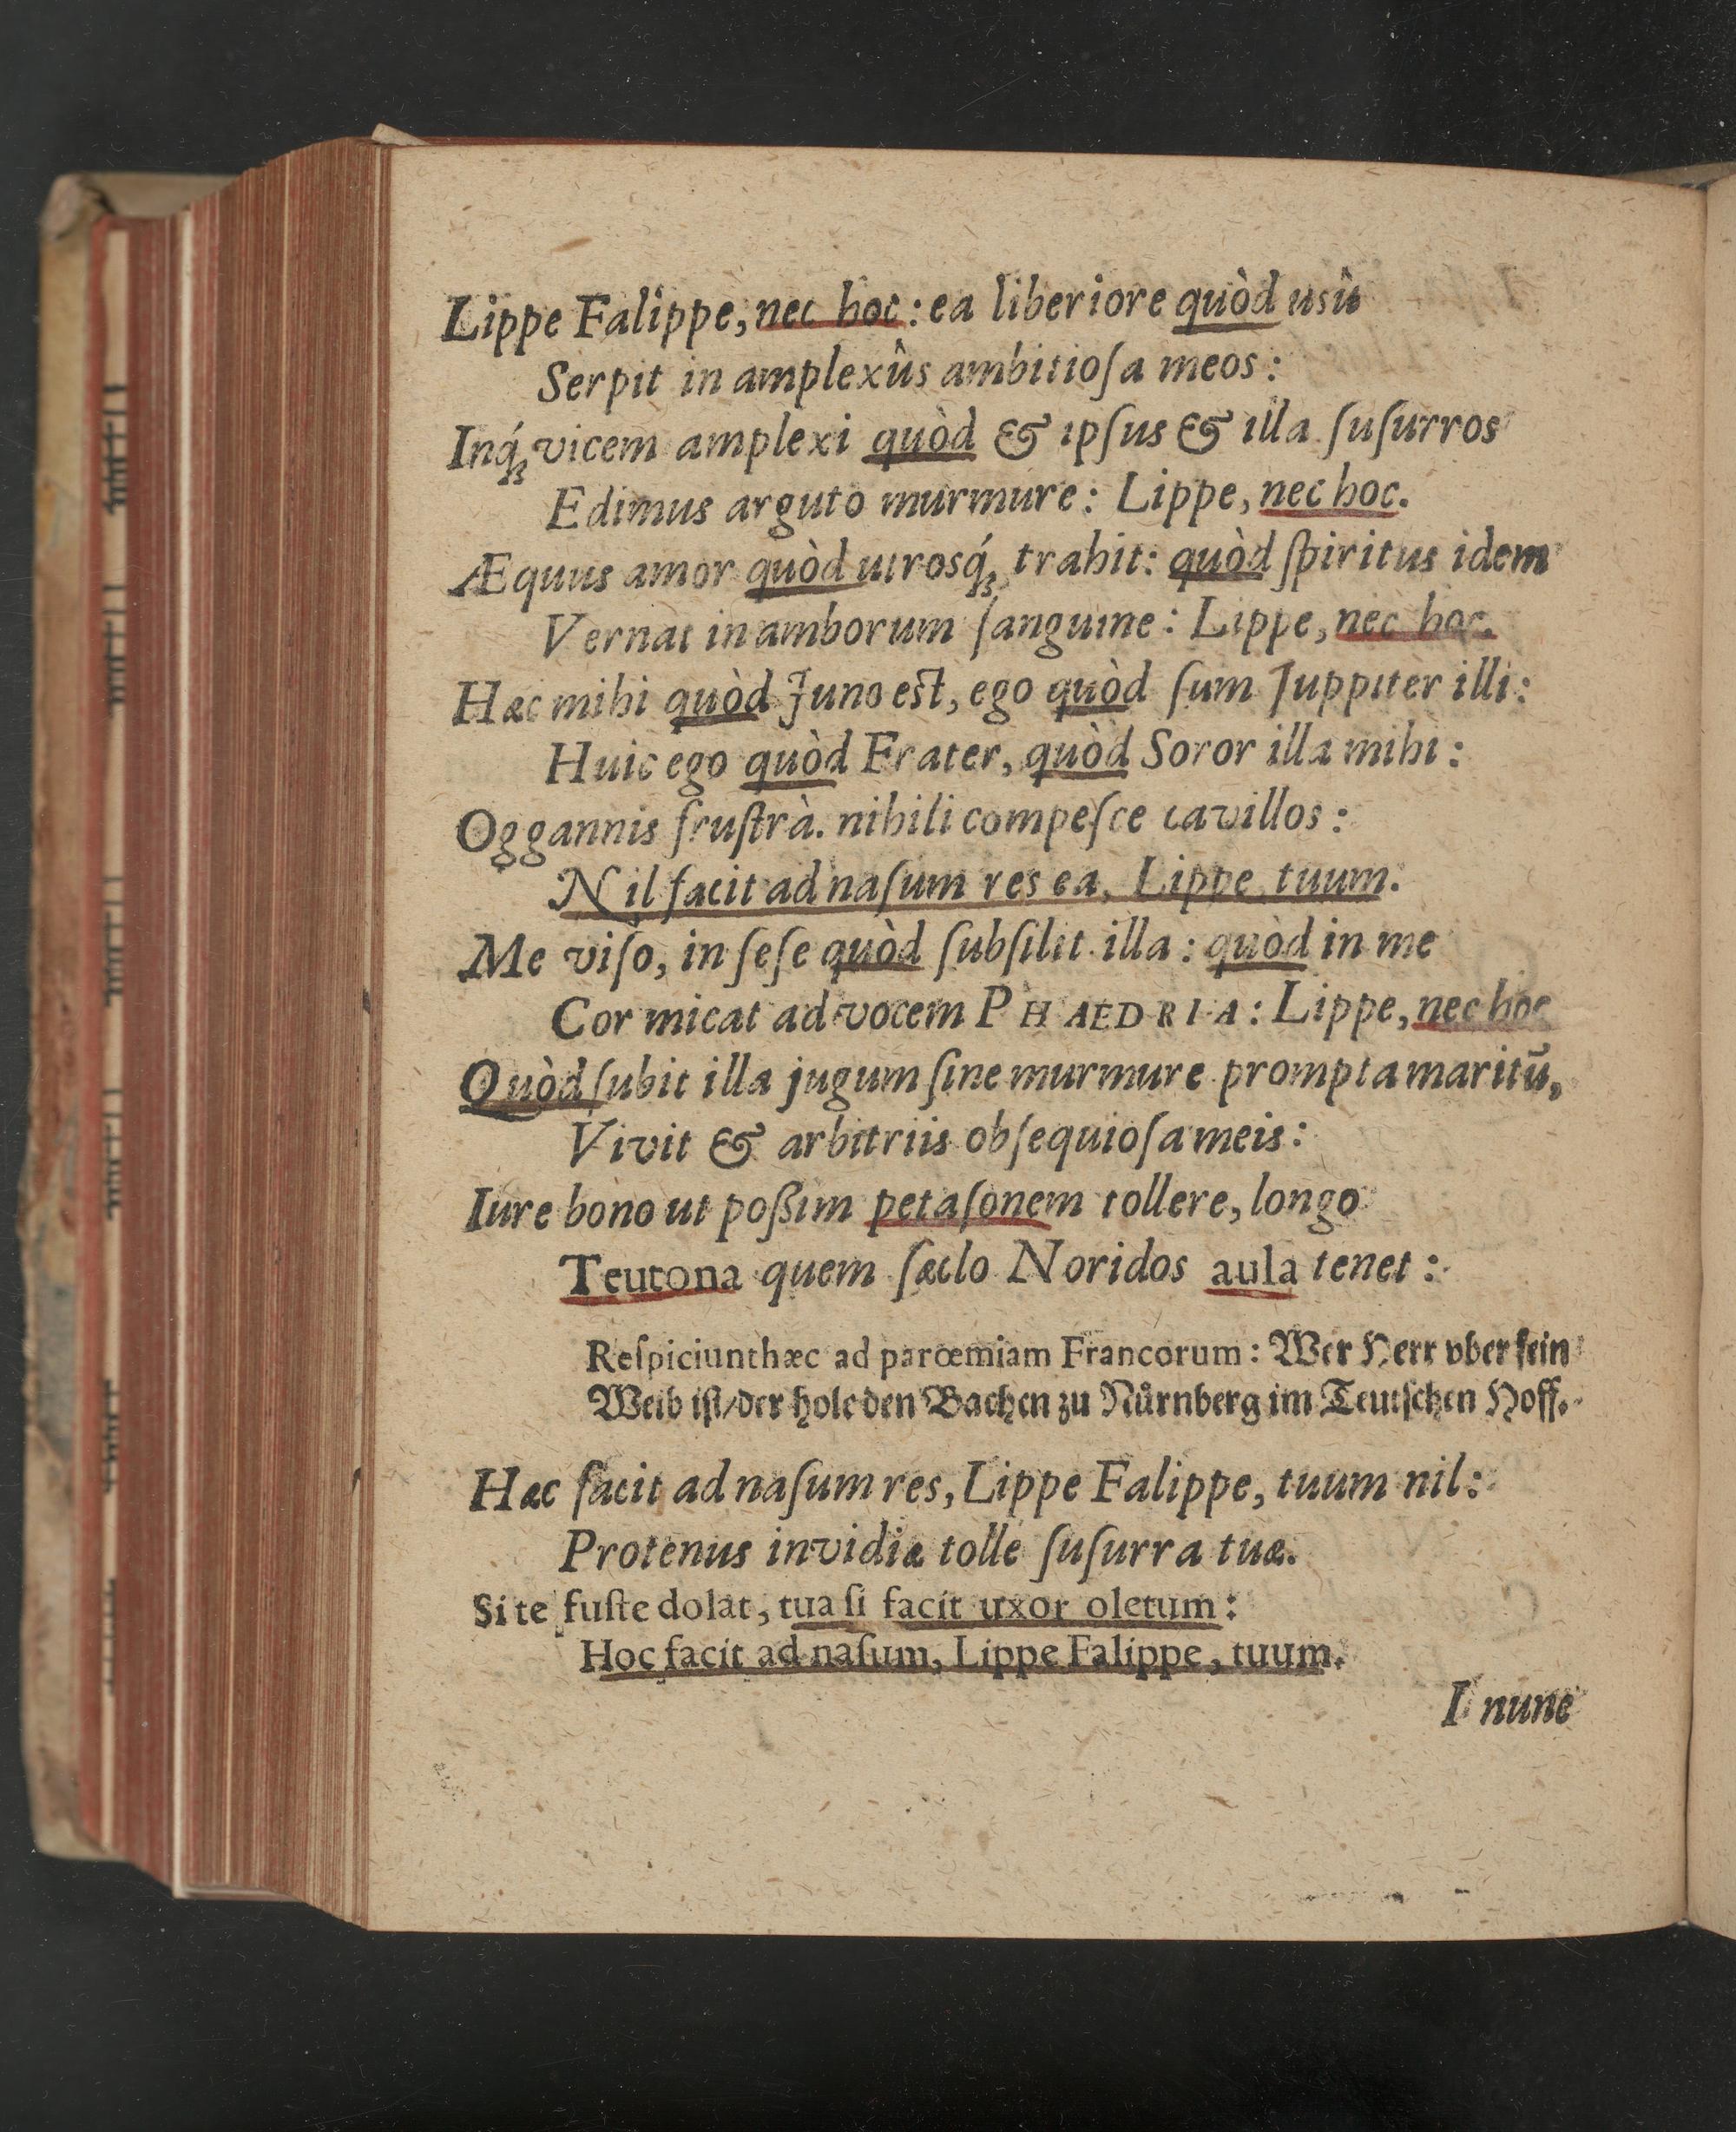 Lippe Falippe, nec hoc: ea liberiore quòd usû
Serpit in amplexûs ambitioſa meos:
Inq́ꝫ vicem amplexi quòd & ipſus & illa ſuſurros
Edimus arguto murmure: Lippe, nec hoc.
Æquus amor quòd utrosq́ꝫ trahit: quòd ſpiritus idem
Vernat in amborum ſanguine: Lippe, nec hoc.
Hæc mihi quòd Juno est, ego quòd ſum Juppiter illi:
Huic ego quòd Frater, quòd Soror illa mihi:
Oggannis fruſtrà. nihili compeſce cavillos:
Nil facit ad naſum res ea, Lippe, tuum.
Me viſo, in ſeſe quòd ſubſilit illa: quòd in me
Cor micat ad vocem PHAEDRIA: Lippe, nec hoc
Quòd ſubit illa jugum ſine murmure prompta maritū,
Vivit & arbitriis obſequioſa meis:
Iure bono ut poßim petaſonem tollere, longo
Teutona quem ſæclo Noridos aula tenet:
Reſpiciunt hæc ad parœmiam Francorum: Wer Herr vber ſein
Weib iſt/ der hole den Bachen zu Nuͤrnberg im Teutſchen Hoff.
Hæc facit ad naſum res, Lippe Falippe, tuum nil:
Protenus invidiæ tolle ſuſurra tuæ.
Si te fuſte dolat, tua ſi facit uxor oletum:
Hoc facit ad naſum, Lippe Falippe, tuum.
I nunc